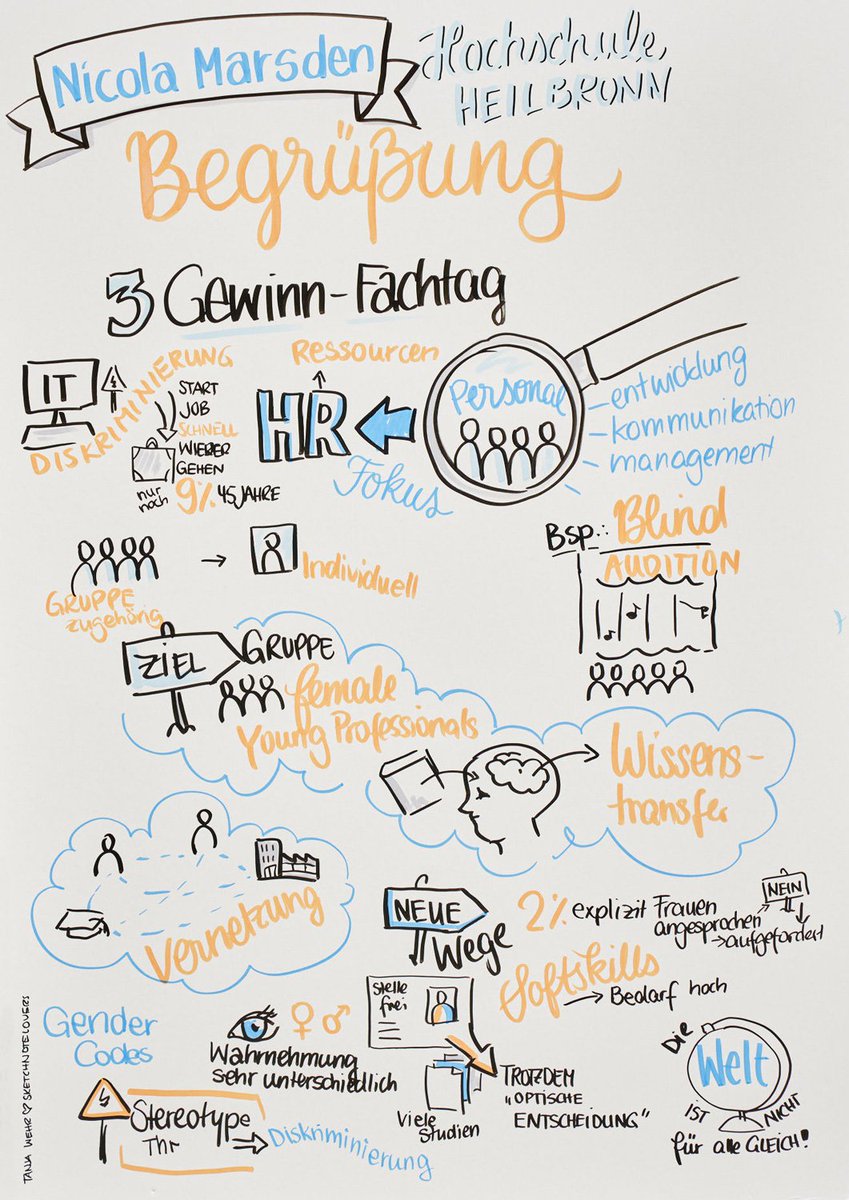 Nicola Marsden
Hochschule
HEILBRONN
Begrüßung
3 Gewinn-Fachtag
IT
DISKRIMINIERUNG
START
JOB
SCHNELL
WIEDER
GEHEN
nur
noch
9% 45 JAHRE
Ressourcen
HR
Fokus
Personal
-entwicklung
-kommunikation
-management
Bsp.: Blind
AUDITION
GRUPPE
zugehörig
Individuell
ZIEL
GRUPPE
female
Young Professionals
Wissens-
transfer
Vernetzung
NEUE
Wege
2% explizit Frauen
angesprochen
→ aufgefordert
NEIN
Softskills
→ Bedarf hoch
Stelle
frei
Gender
Codes
♀ ♂
Wahrnehmung
sehr unterschiedlich
Viele
Studien
TROTZDEM
"OPTISCHE
ENTSCHEIDUNG"
Stereotype
Thr
→ Diskriminierung
Die
Welt
IST
NICHT
für alle GLEICH!
TANJA WEHR ♡ SKETCHNOTELOVERS